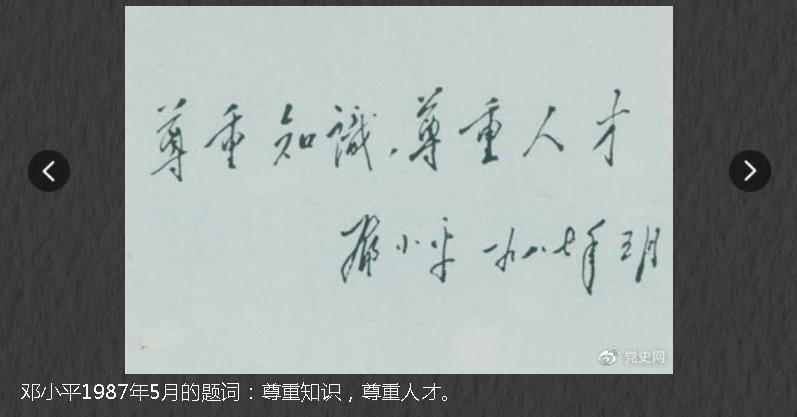 尊重知識，尊重人才
鄧小平 一九八七年五月
党史网
邓小平1987年5月的题词：尊重知识，尊重人才。